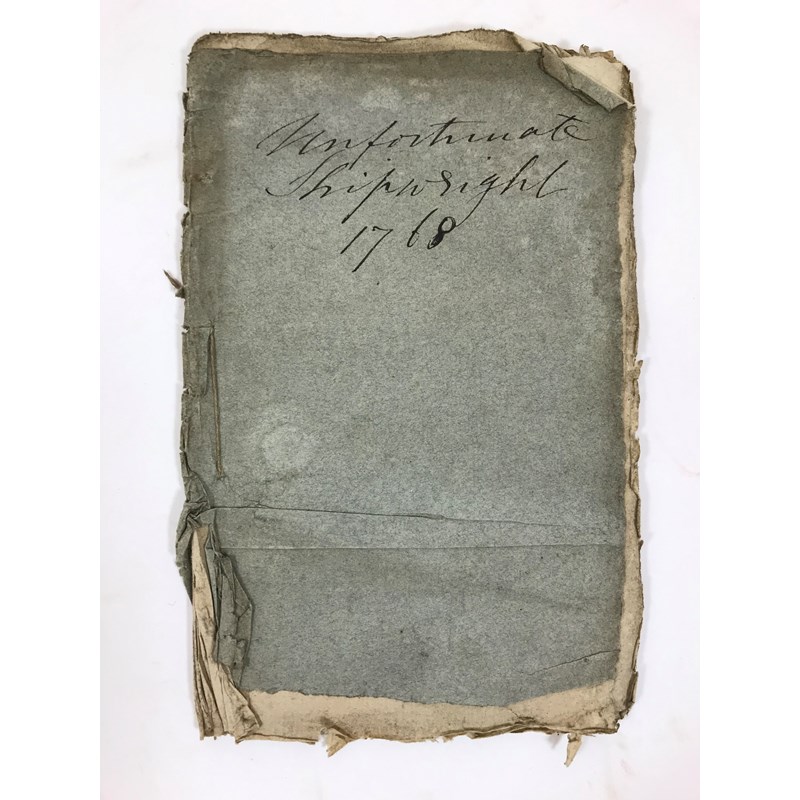 Unfortunate
Shipwright
1768